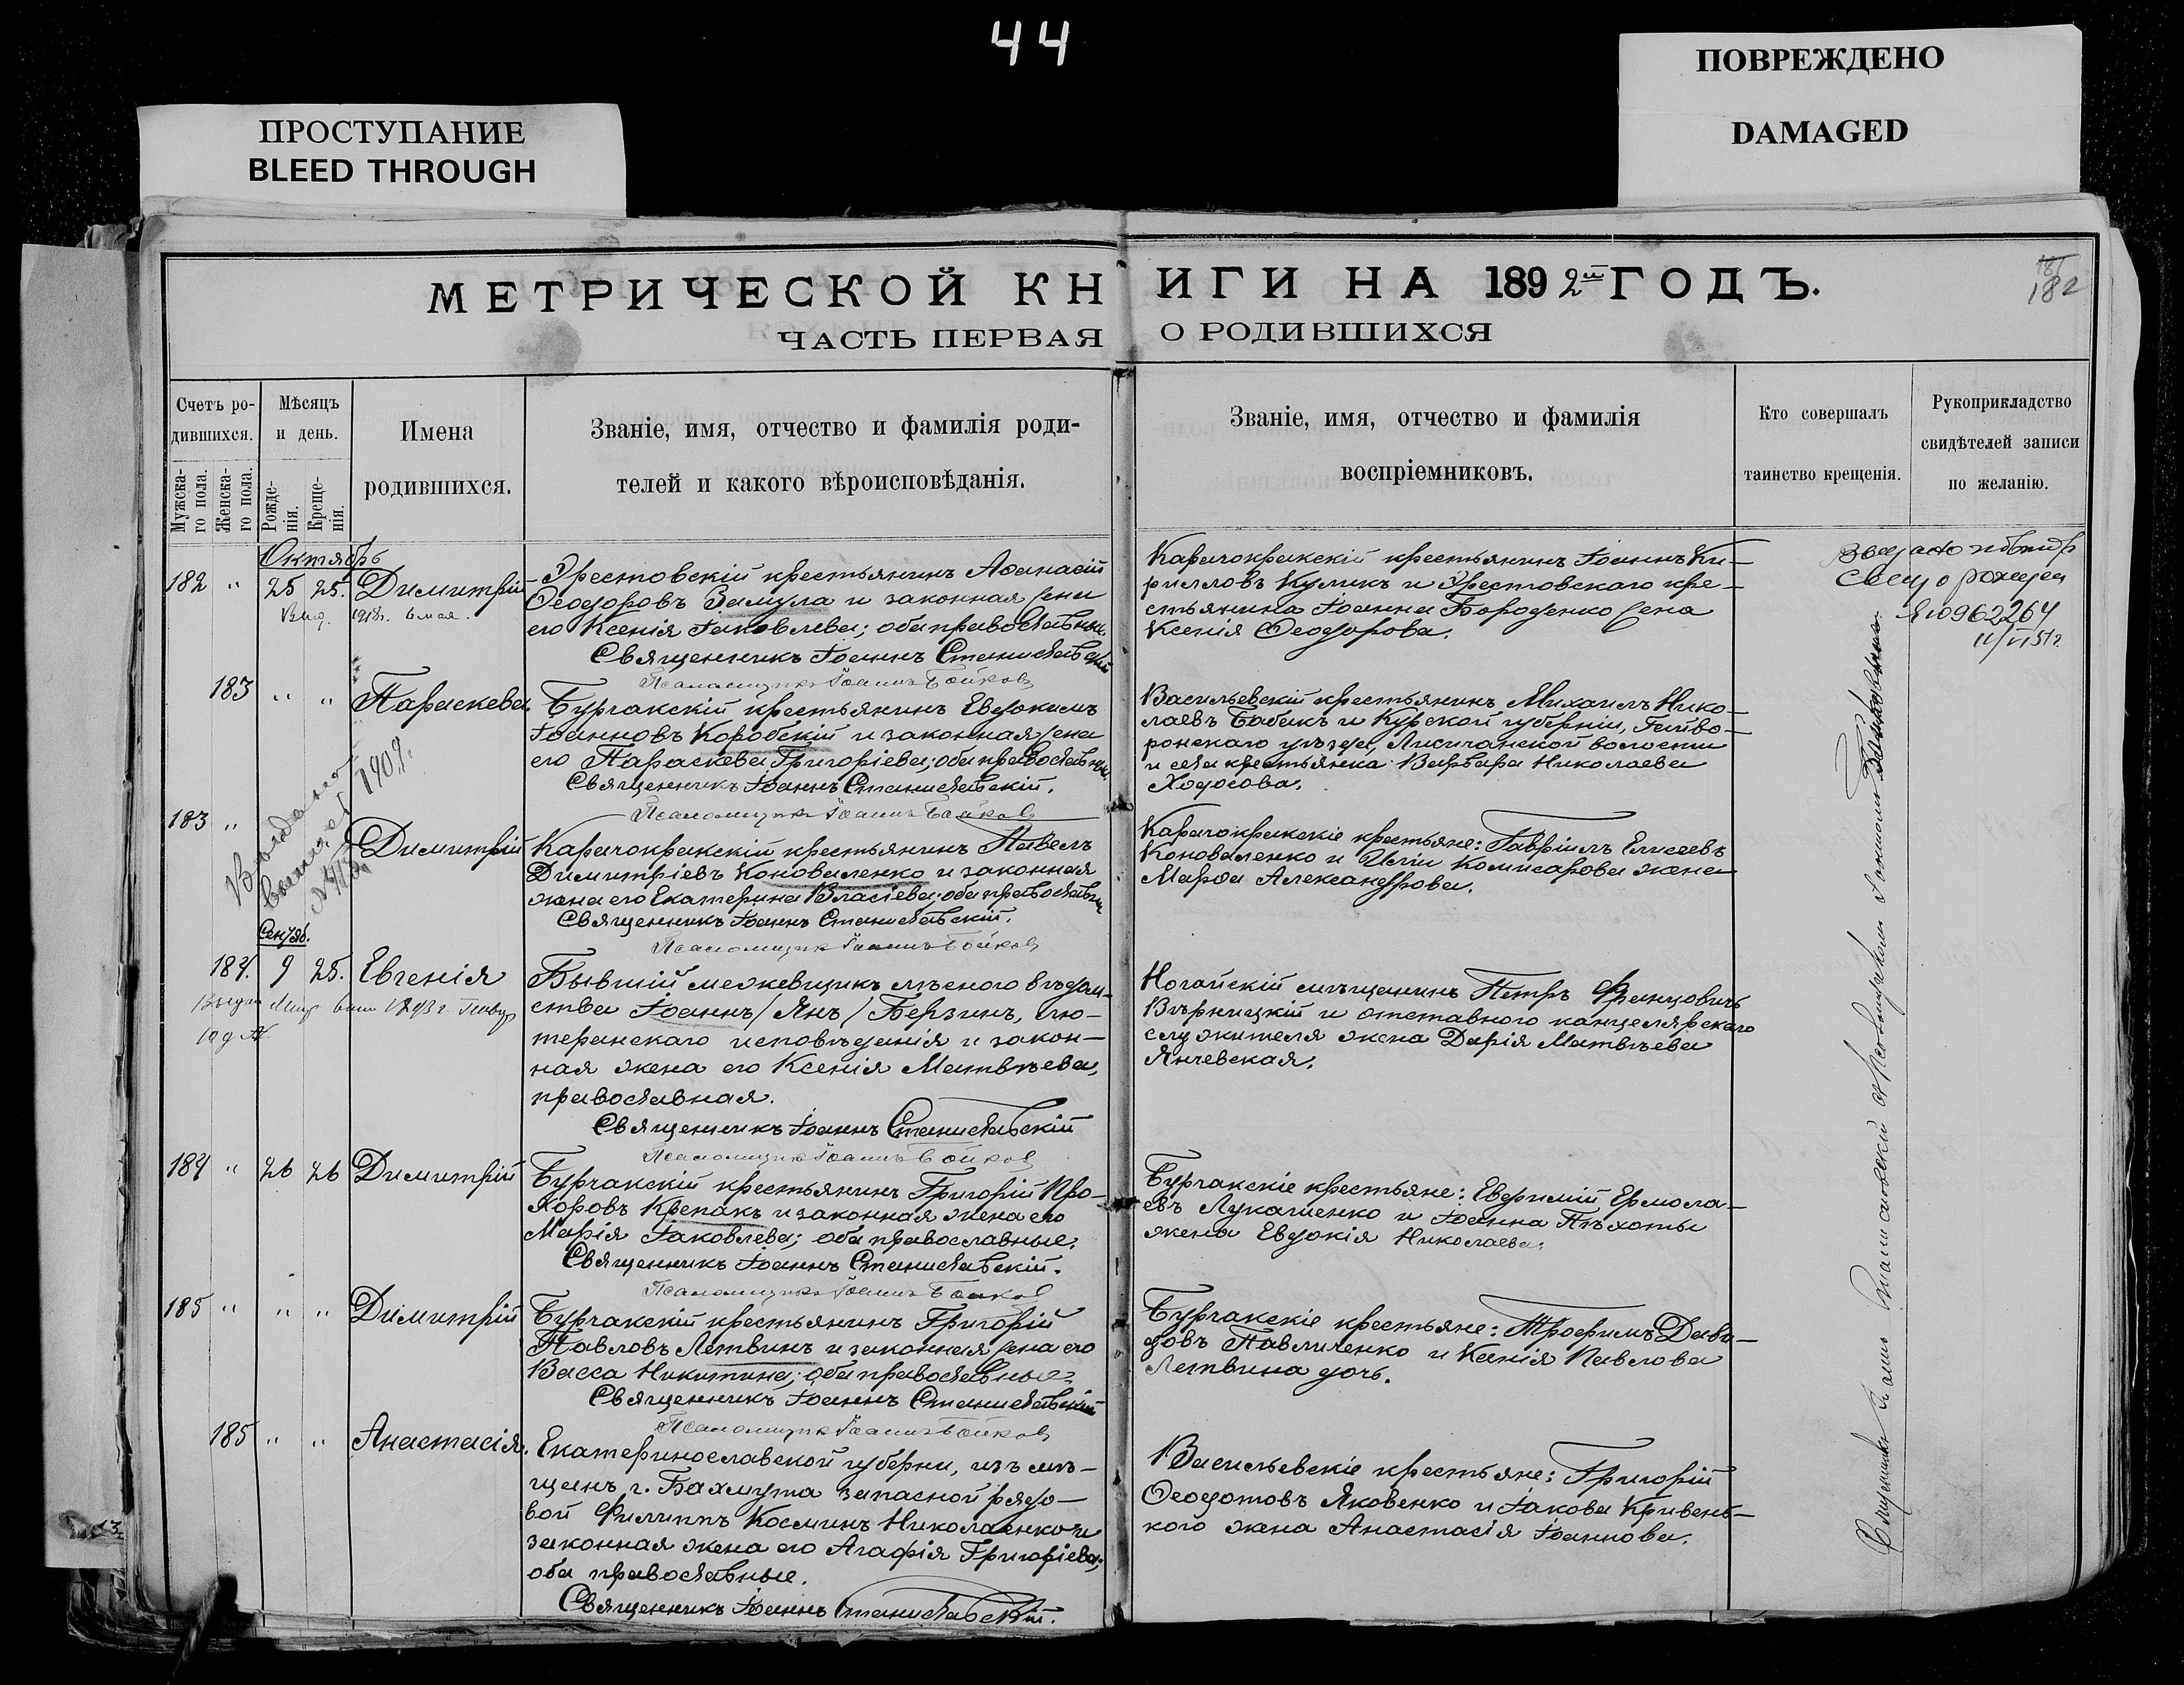 44
ПРОСТУПАНИЕ
BLEED THROUGH
ПОВРЕЖДЕНО
DAMAGED
МЕТРИЧЕСКОЙ КНИГИ НА 1892й ГОДЪ.
181
182
ЧАСТЬ ПЕРВАЯ О РОДИВШИХСЯ
Счетъ ро-
дившихся.
Мужска-
го пола.
Женска-
го пола.
Мѣсяцъ
и день.
Рожде-
нія.
Креще-
нія.
Имена
родившихся.
Званіе, имя, отчество и фамилія роди-
телей и какого вѣроисповѣданія.
Званіе, имя, отчество и фамилія
воспріемниковъ.
Кто совершалъ
таинство крещенія.
Рукоприкладство
свидѣтелей записи
по желанію.
Октябрь
182 " 25 25. Димитрій
Выд. 1918г. 6 мая.
Эрестовскій крестьянинъ Аѳанасій
Ѳеодоровъ Замула и законная жена
его Ксенія Іаковлева; оба православные.
Священникъ Іоаннъ Станиславскій
Псаломщикъ Іоаннъ Бойковъ
Карачокракскій крестьянинъ Іоаннъ Ки-
рилловъ Куликъ и Эрестовскаго кре-
стьянина Іоанна Бороденко жена
Ксенія Ѳеодорова.
свид о рожден
ЯЮ962264
183 " " Параскева
Бурчакскій крестьянинъ Евдокимъ
Іоанновъ Коробскій и законная жена
его Параскева Григоріева; оба православные.
Священникъ Іоаннъ Станиславскій.
Псаломщикъ Іоаннъ Бойковъ
Васильевскій крестьянинъ Михаилъ Нико-
лаевъ Бабакъ и Курской губерніи, Гайво-
ронскаго уѣзда, Лисичанской волости
и села крестьянка Варвара Николаева
Ходосова.
183 "
Димитрій
Выдана
выпись 1909г.
Карачокракскій крестьянинъ Павелъ
Димитріевъ Коноваленко и законная
жена его Екатерина Власіева; оба православные
Священникъ Іоаннъ Станиславскій.
Псаломщикъ Іоаннъ Бойковъ
Карачокракскіе крестьяне: Гавріилъ Елисеевъ
Коноваленко и Иліи Комисарова жена
Марѳа Александрова.
Сентяб.
184. 9 25. Евгенія
Бывшій межевщикъ лѣсного вѣдом-
ства Іоаннъ /Янъ/ Берзинъ, лю-
теранскаго исповѣданія и закон-
ная жена его Ксенія Матвѣева,
православная.
Священникъ Іоаннъ Станиславскій
Псаломщикъ Іоаннъ Бойковъ
Ногайскій мѣщанинъ Петръ Францовичъ
Вѣрницкій и отставного канцелярскаго
служителя жена Дарія Матвѣева
Янчевская.
184 " 26 26 Димитрій
Бурчакскій крестьянинъ Григорій Про-
хоровъ Крепакъ и законная жена его
Марія Іаковлева; оба православные.
Священникъ Іоаннъ Станиславскій.
Псаломщикъ Іоаннъ Бойковъ
Бурчакскіе крестьяне: Евфимій Ермола-
евъ Лукашенко и Іоанна Пѣхоты
жена Евдокія Николаева.
185 " " " Димитрій
Бурчакскій крестьянинъ Григорій
Павловъ Летвинъ и законная жена его
Васса Никитина; оба православные.
Священникъ Іоаннъ Станиславскій
Псаломщикъ Іоаннъ Бойковъ
Бурчакскіе крестьяне: Трофимъ Дави-
довъ Павличенко и Ксенія Павлова
Летвина дочь.
185 " " Анастасія.
Екатеринославской губерни, изъ мѣ-
щанъ г. Бахмута запасной рядо-
вой Филиппъ Косминъ Николаенко и
законная жена его Агафія Григоріева;
оба православные.
Священникъ Іоаннъ Станиславскій.
Васильевскіе крестьяне: Григорій
Ѳеодотовъ Яковенко и Іакова Кривень-
кого жена Анастасія Іоаннова.
Священникъ Іоаннъ Станиславскій съ псаломщикомъ Іоанномъ Бойковымъ.